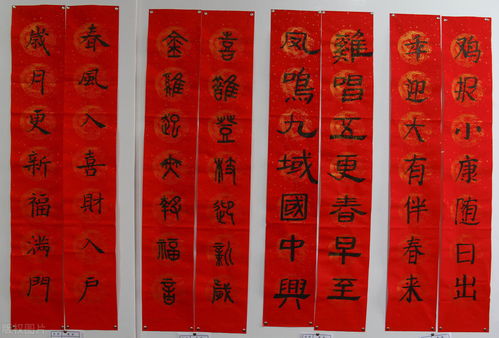 鸡报小康随日出
秊迎大有伴春来
雞唱五更春早至
凤鳴九域國中興
喜鵲登枝迎新歲
金雞起報福音
春風入喜財入戶
歲月更新福满門
版权图片